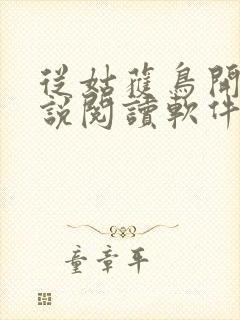 從姑蒦鳥開
說閱讀軟件
童章平